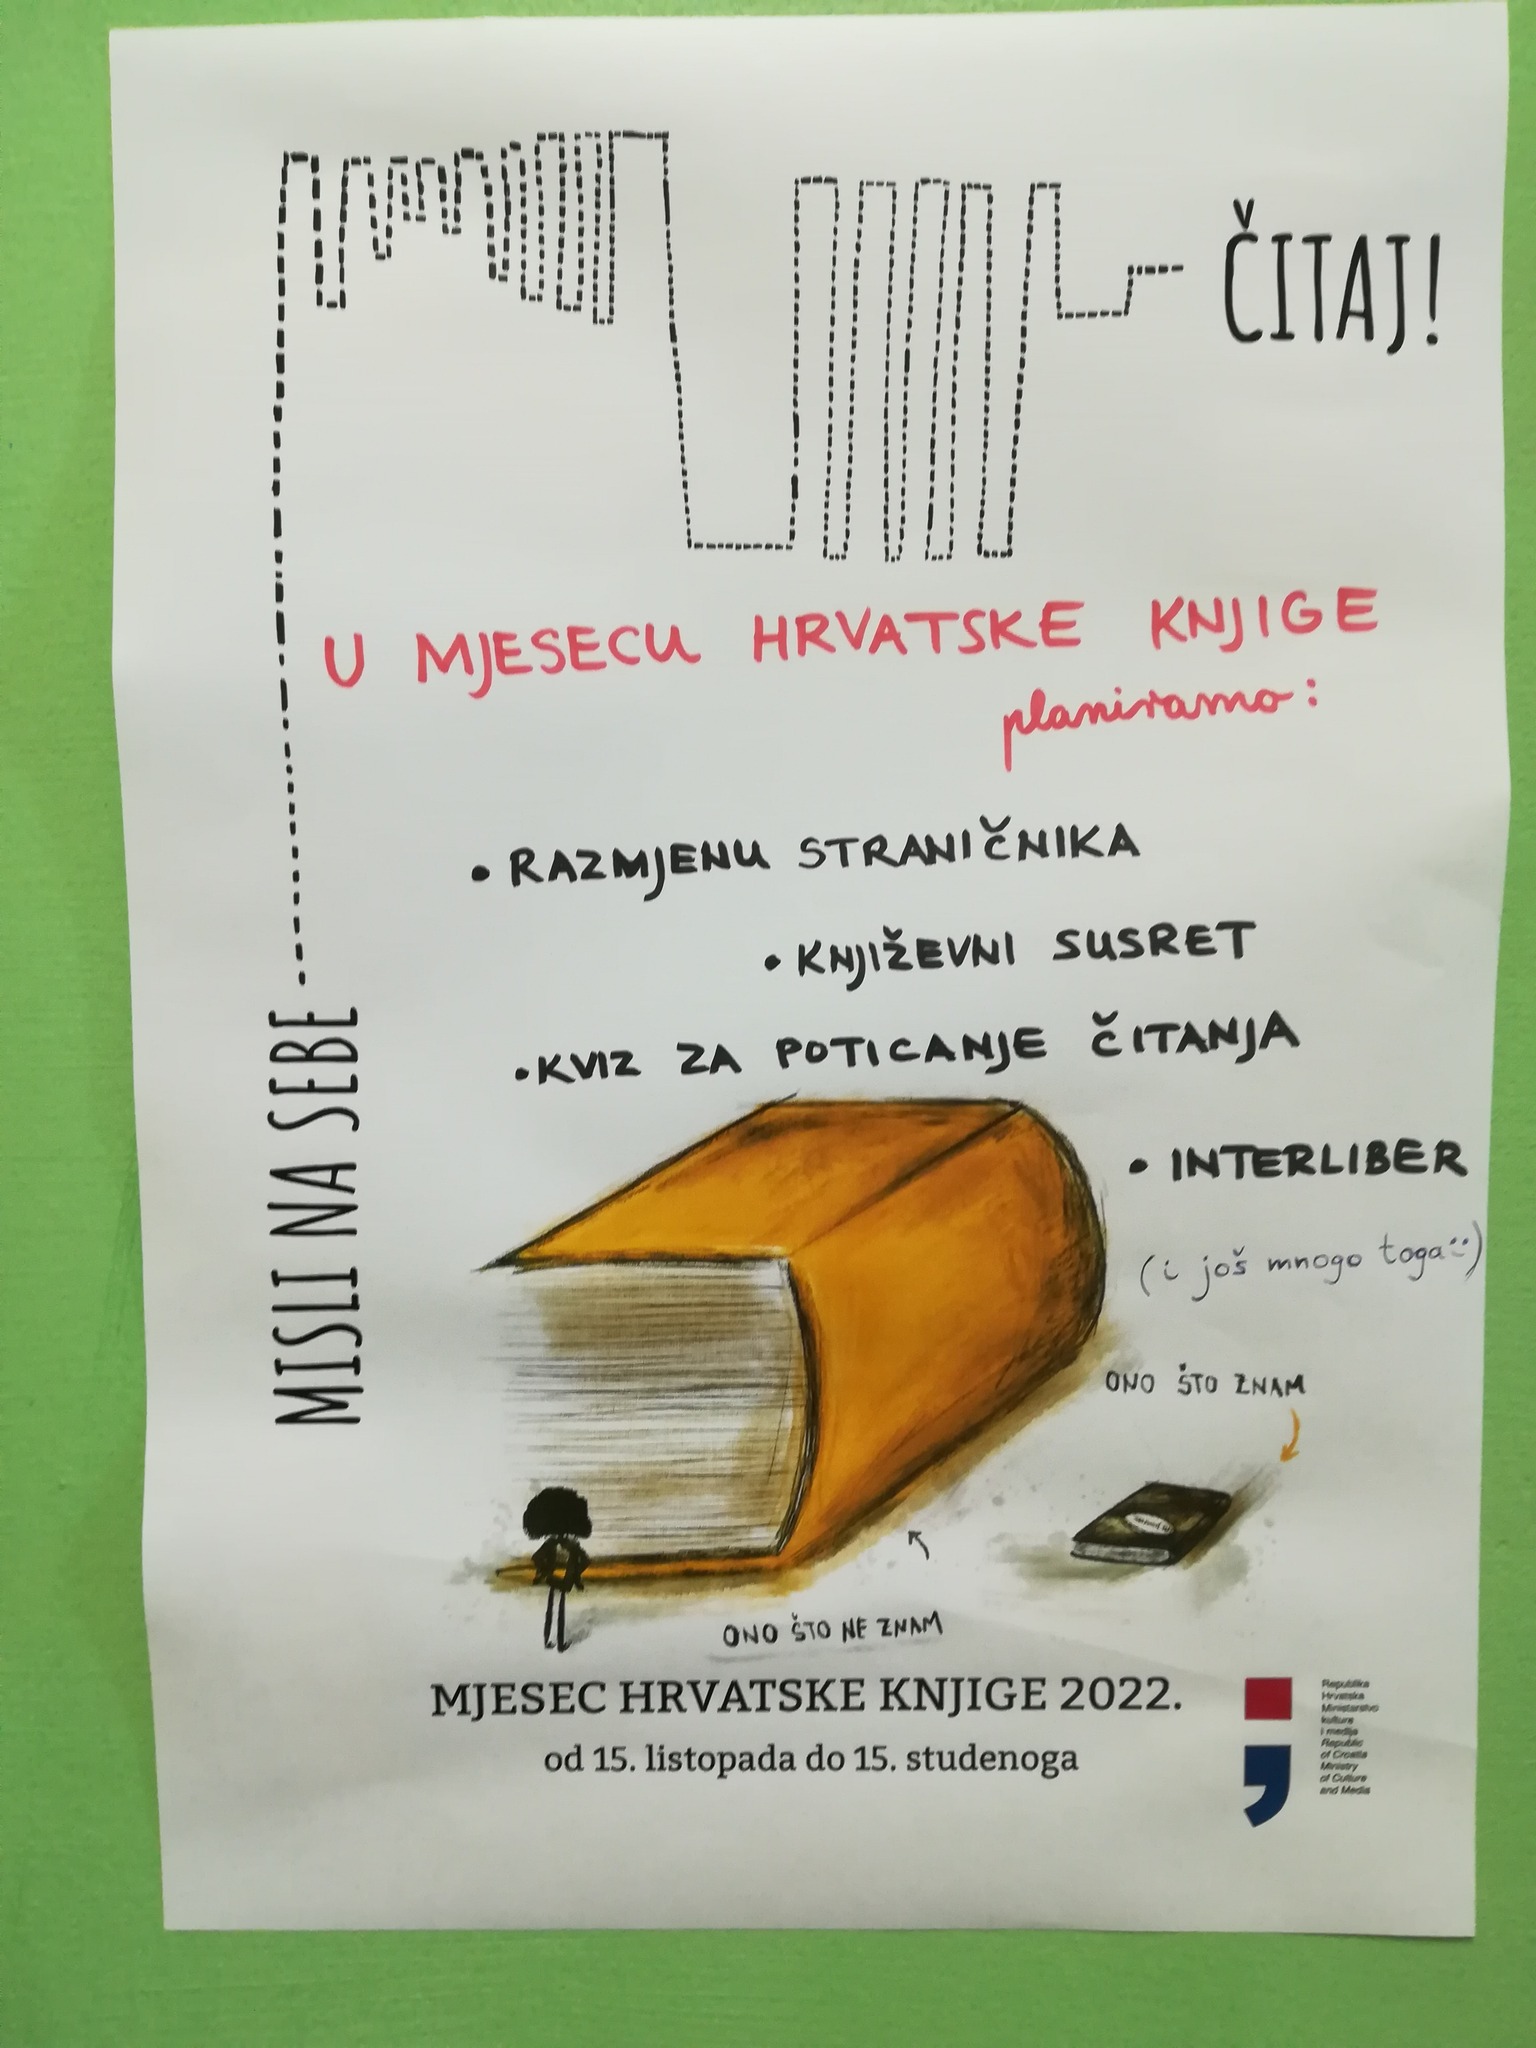 ČITAJ!
MISLI NA SEBE
U MJESECU HRVATSKE KNJIGE
planiramo:
• RAZMJENU STRANIČNIKA
• KNJIŽEVNI SUSRET
• KVIZ ZA POTICANJE ČITANJA
• INTERLIBER
(i još mnogo toga:))
ONO ŠTO ZNAM
ONO ŠTO NE ZNAM
MJESEC HRVATSKE KNJIGE 2022.
od 15. listopada do 15. studenoga
Republika
Hrvatska
Ministarstvo
kulture
i medija
Republic
of Croatia
Ministry
of Culture
and Media